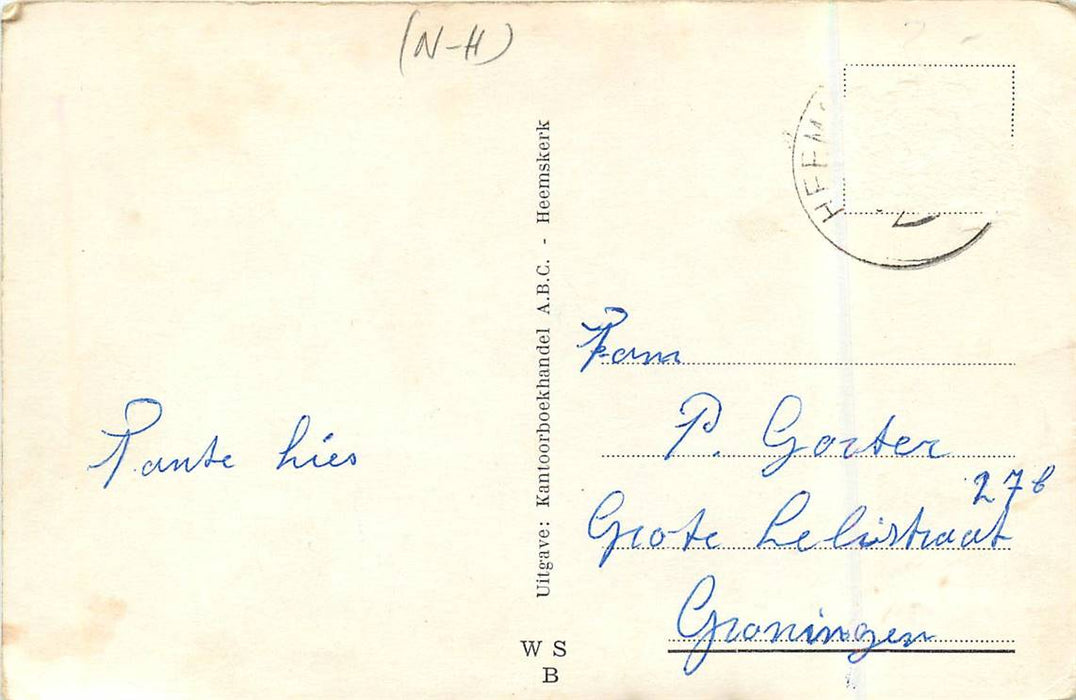 (N-H)
Tante Lies
Uitgave: Kantoorboekhandel A.B.C. - Heemskerk
W S
B
HEEMS
Fam
P. Gorter
27b
Grote Leliestraat
Groningen